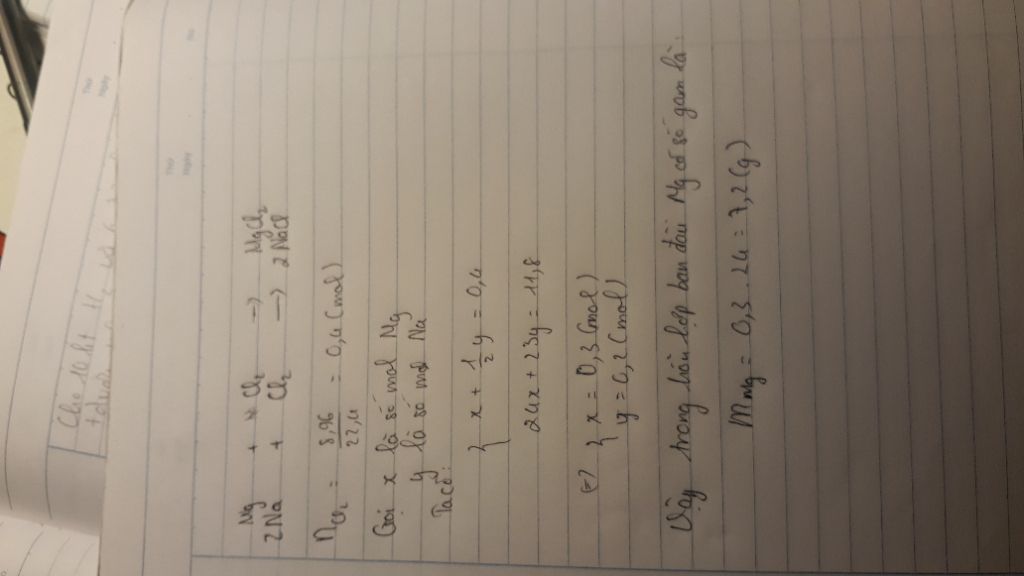 Thứ
Ngày
No
Thứ
Ngày
Cho
Mg + Cl₂ → MgCl₂
2Na + Cl₂ → 2NaCl
nCl₂ = 8,96 / 22,4 = 0,4 (mol)
Gọi x là số mol Mg
y là số mol Na
Ta có:
{ x + 1/2 y = 0,4
24x + 23y = 11,8
{ x = 0,3 (mol)
y = 0,2 (mol)
Vậy trong hỗn hợp ban đầu Mg có số gam là:
mMg = 0,3 . 24 = 7,2 (g)